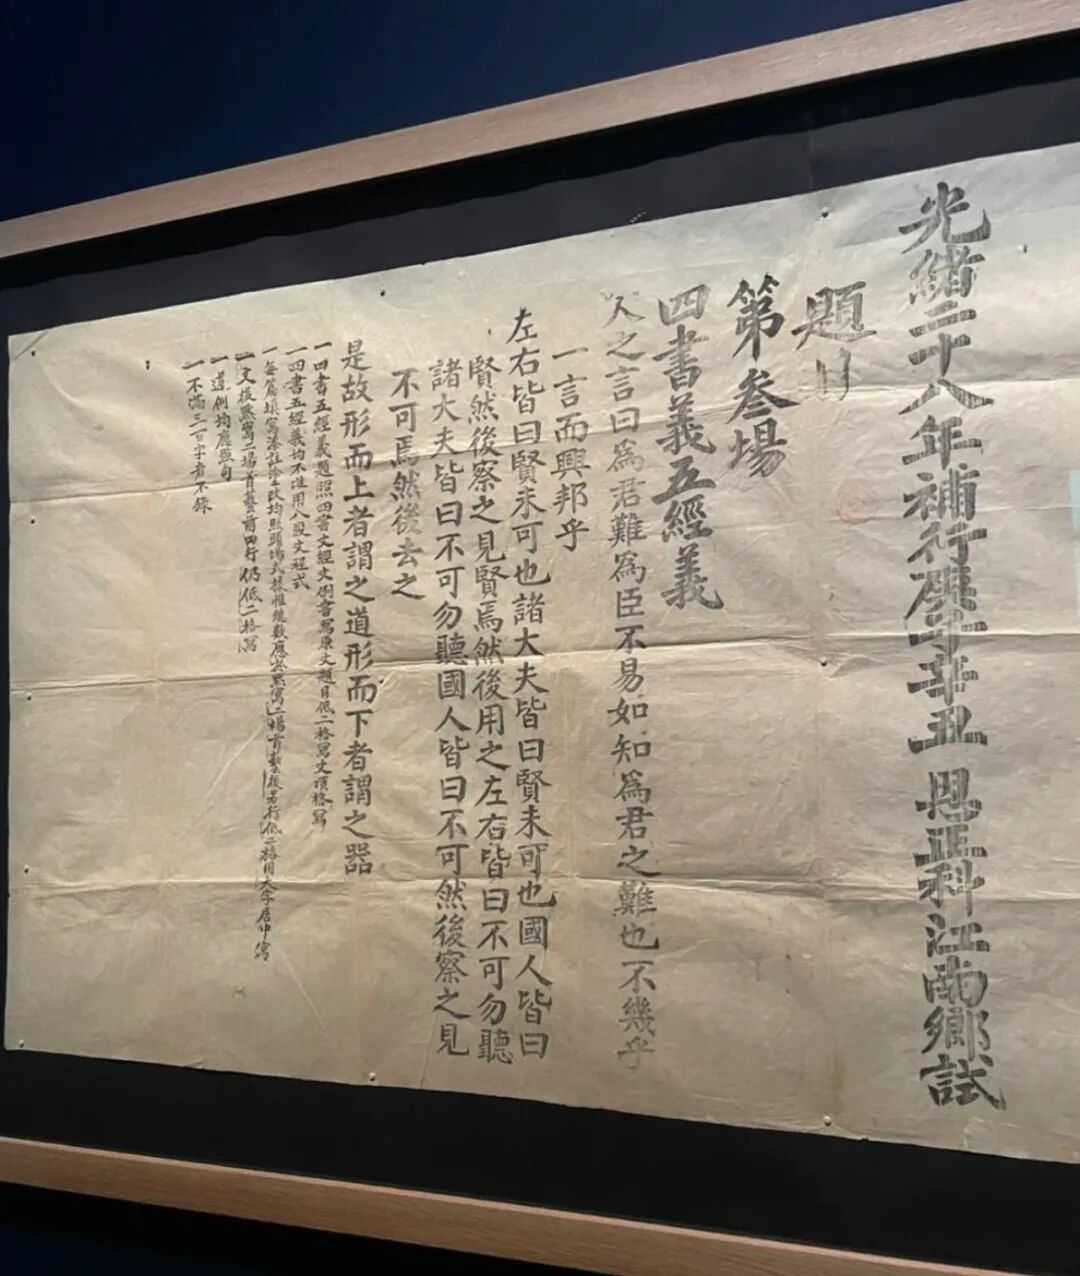 光緒二十八年補行庚子辛丑恩正科江南鄉試
題目
第叁場
四書義五經義
人之言曰爲君難爲臣不易如知爲君之難也不幾乎
一言而興邦乎
左右皆曰賢未可也諸大夫皆曰賢未可也國人皆曰
賢然後察之見賢焉然後用之左右皆曰不可勿聽
諸大夫皆曰不可勿聽國人皆曰不可然後察之見
不可焉然後去之
是故形而上者謂之道形而下者謂之器
一四書五經義題照四書文經文例書寫原文題目低二格寫文頂格寫
一四書五經義均不准用八股文程式
一每篇填寫添註塗改均照頭場式樣惟總數應於默寫二場首藝後另行低二格用大字居中寫
一文後默寫二場首藝前四行仍低二格寫
一遵例均應點句
一不滿三百字者不錄